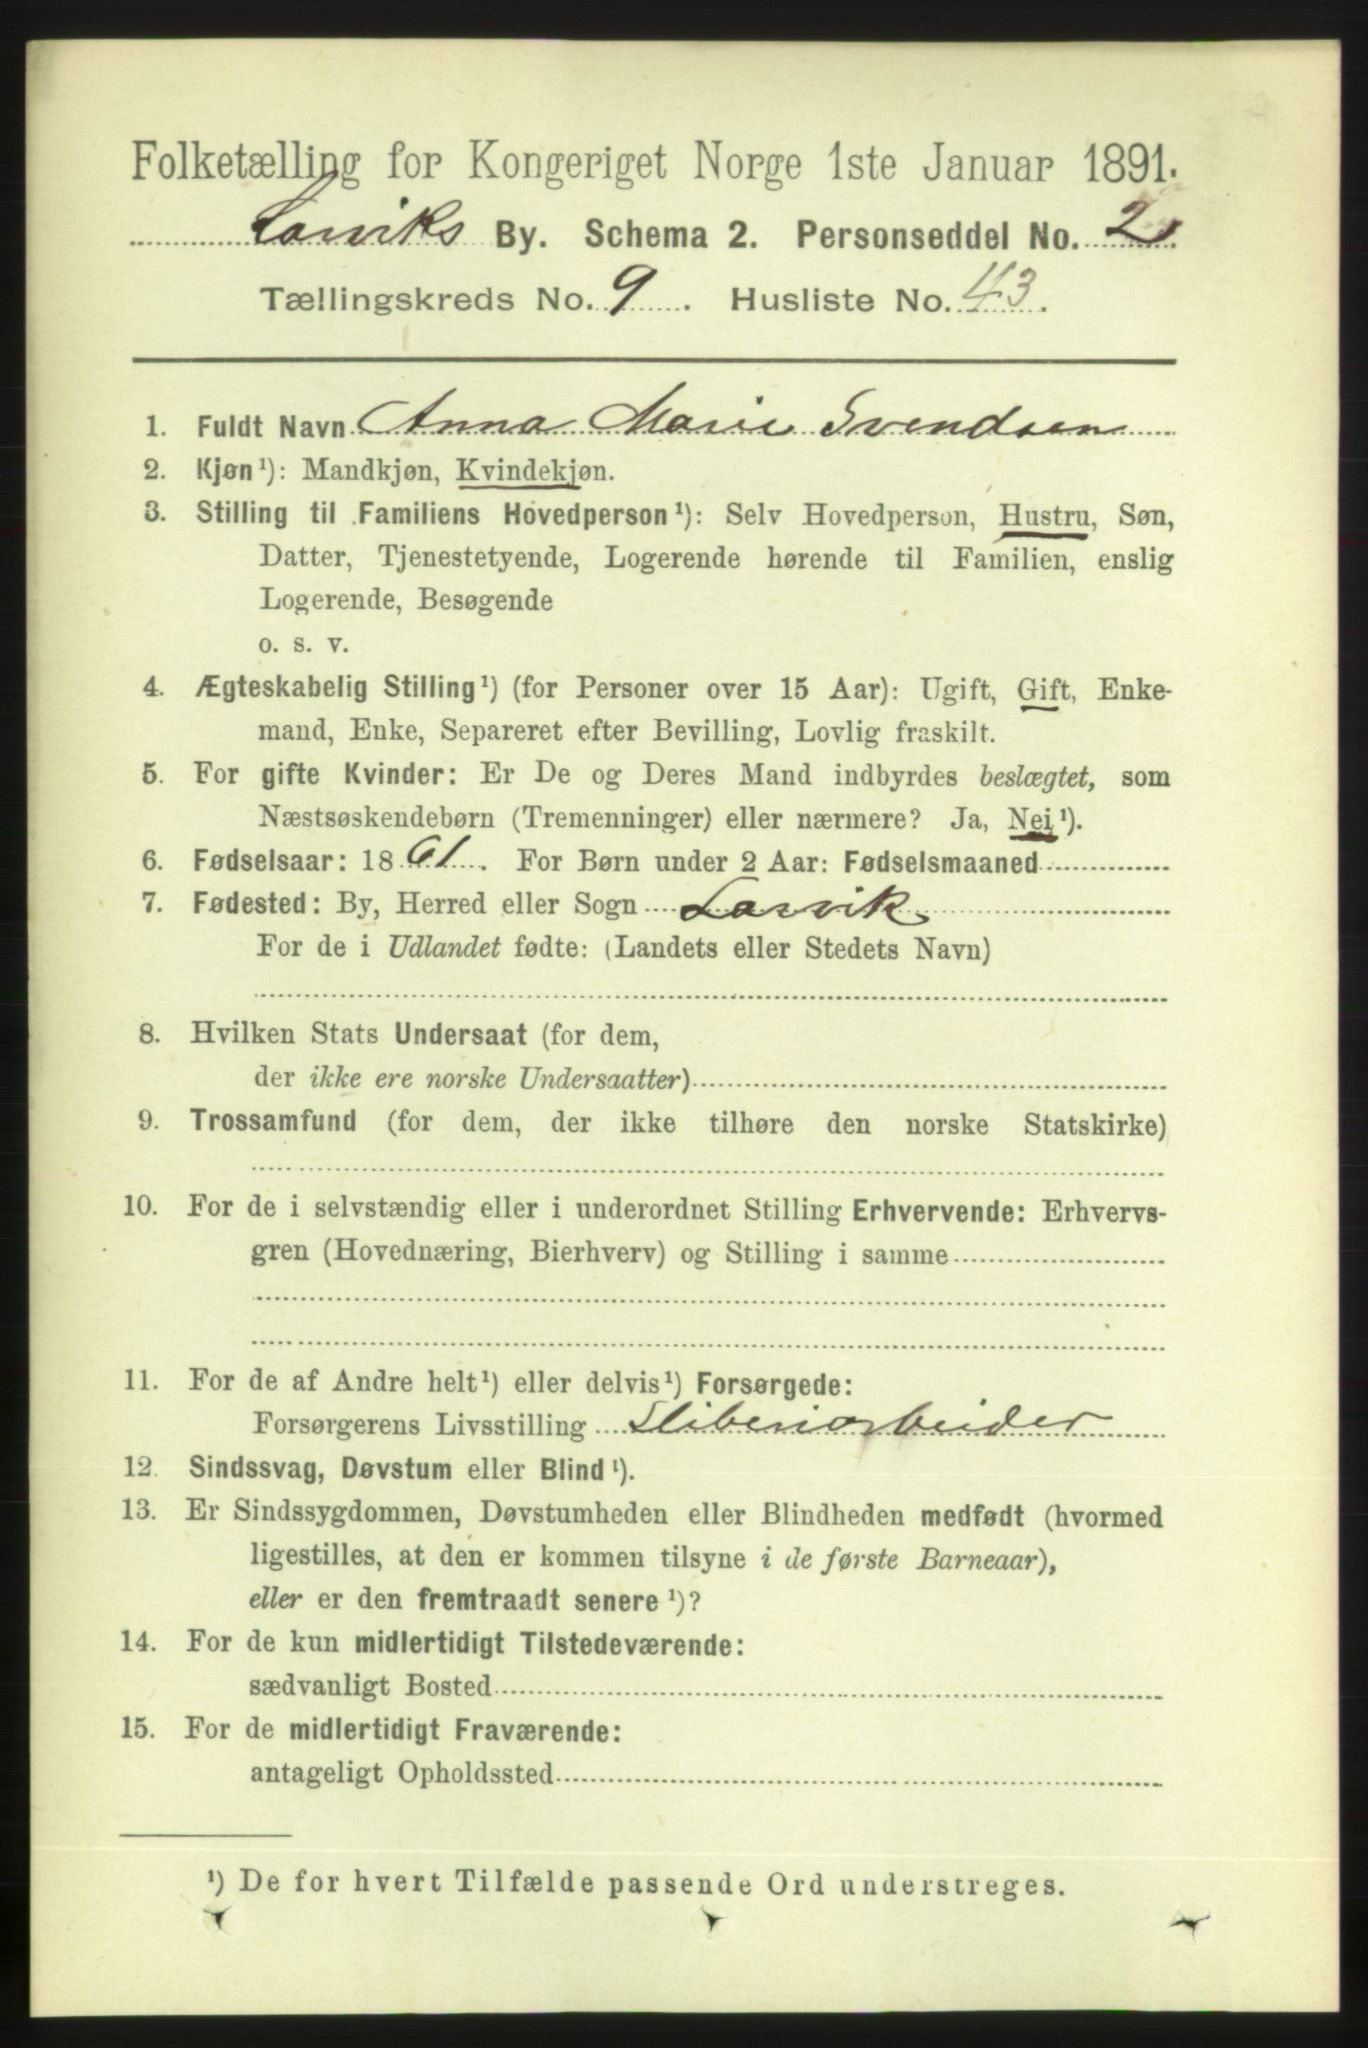 Folketælling for Kongeriget Norge 1ste Januar 1891.
Larviks By. Schema 2. Personseddel No. 2.
Tællingskreds No. 9. Husliste No. 43.
1. Fuldt Navn Anna Marie Svendsen
2. Kjøn¹): Mandkjøn, Kvindekjøn.
3. Stilling til Familiens Hovedperson¹): Selv Hovedperson, Hustru, Søn,
Datter, Tjenestetyende, Logerende hørende til Familien, enslig
Logerende, Besøgende
o. s. v.
4. Ægteskabelig Stilling¹) (for Personer over 15 Aar): Ugift, Gift, Enke-
mand, Enke, Separeret efter Bevilling, Lovlig fraskilt.
5. For gifte Kvinder: Er De og Deres Mand indbyrdes beslægtet, som
Næstsøskendebørn (Tremenninger) eller nærmere? Ja, Nei¹).
6. Fødselsaar: 1861. For Børn under 2 Aar: Fødselsmaaned
7. Fødested: By, Herred eller Sogn Larvik
For de i Udlandet fødte: (Landets eller Stedets Navn)
8. Hvilken Stats Undersaat (for dem,
der ikke ere norske Undersaatter)
9. Trossamfund (for dem, der ikke tilhøre den norske Statskirke)
10. For de i selvstændig eller i underordnet Stilling Erhvervende: Erhvervs-
gren (Hovednæring, Bierhverv) og Stilling i samme
11. For de af Andre helt¹) eller delvis¹) Forsørgede:
Forsørgerens Livsstilling Sliberiarbeider
12. Sindssvag, Døvstum eller Blind¹).
13. Er Sindssygdommen, Døvstumheden eller Blindheden medfødt (hvormed
ligestilles, at den er kommen tilsyne i de første Barneaar),
eller er den fremtraadt senere¹)?
14. For de kun midlertidigt Tilstedeværende:
sædvanligt Bosted
15. For de midlertidigt Fraværende:
antageligt Opholdssted
¹) De for hvert Tilfælde passende Ord understreges.